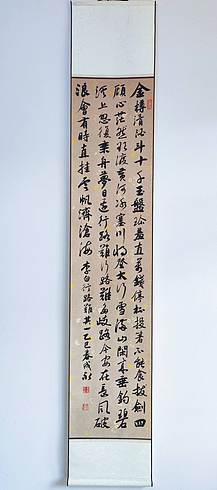 金樽清酒斗十千玉盤珍羞直萬錢停杯投箸不能食拔劍四
顧心茫然欲渡黃河冰塞川將登太行雪滿山閑來垂釣碧
溪上忽復乘舟夢日邊行路難行路難多歧路今安在長風破
浪會有時直挂雲帆濟滄海 李白行路難其一乙巳春